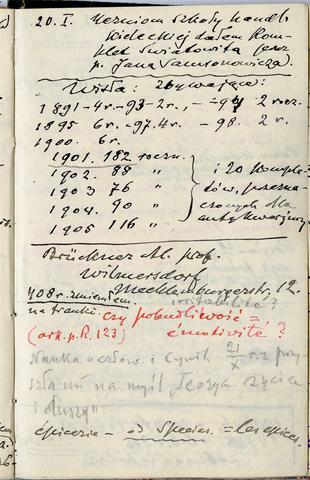 20. I. Uczniom szkoły handl.
dałem Kom-
plet Światowita przez
p. Jana Samsonowicza.
Wisła: zbywające:
1891-4 r. -93-2 r., -94 2 rocz.
1895 6 r. -97. 4 r. -98. 2 r.
1900. 6 r.
1901. 182 roczn.
1902. 88 "
1903 76 "
1904. 90 "
1905 116 "
i 20 komple-
tów, przezna-
czonych dla
antykwarjuszy
Brückner Al. prof.
Wilmersdorf
Mecklenburgerstr. 12.
908 r. zmieniłem
irritabilité?
na tranki: czy pobudliwość =
(ark. p. R. 123) émotivité?
Nauka o człow. i Cywil. 21/X r. z przy-
szła mi na myśl "Teorya życia
i duszy"
épicerie - od species. = les épices.